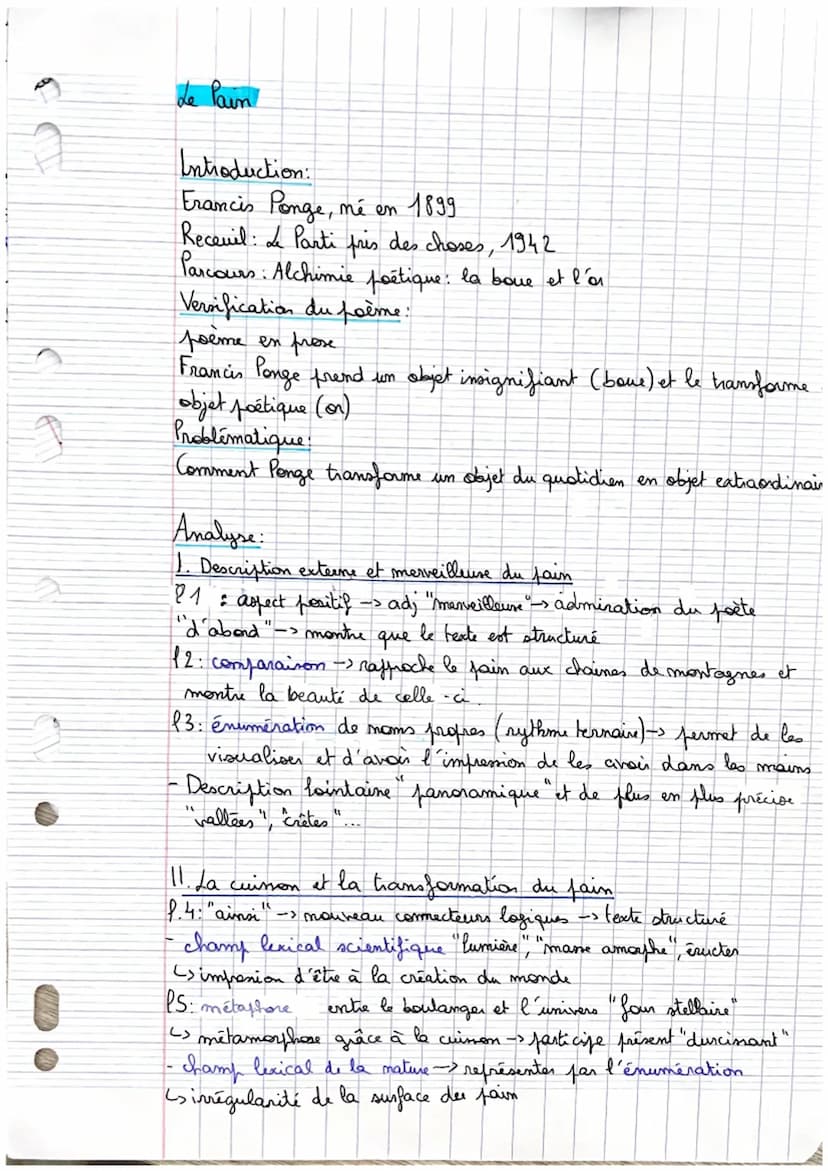 Le Pain
Introduction:
Francis Ponge, né en 1899
Receuil: Le Parti pris des choses, 1942
Parcours: Alchimie poétique: la boue et l'or
Versification du poème:
poème en prose
Francis Ponge prend un objet insignifiant (boue) et le transforme
objet poétique (or)
Problématique:
Comment Ponge transforme un objet du quotidien en objet extraordinair
Analyse:
I. Description externe et merveilleuse du pain
l1 : aspect positif -> adj "merveilleuse" -> admiration du poète
"d'abord" -> montre que le texte est structuré
l2: comparaison -> rapproche le pain aux chaines de montagnes et
montre la beauté de celle-ci.
l3: énumération de noms propres (rythme ternaire) -> permet de les
visualiser et d'avoir l'impression de les avoir dans les mains
- Description lointaine "panoramique" et de plus en plus précise
"vallées", "crêtes"...
II. La cuisson et la transformation du pain
l.4: "ainsi" -> nouveau connecteurs logiques -> texte structuré
- champ lexical scientifique "lumière", "masse amorphe", éructer
↳ impression d'être à la création du monde
l5: métaphore entre le boulanger et l'univers "four stellaire"
↳ métamorphose grâce à la cuisson -> participe présent "durcissant"
- champ lexical de la nature -> représenter par l'énumération
↳ irrégularité de la surface des pain